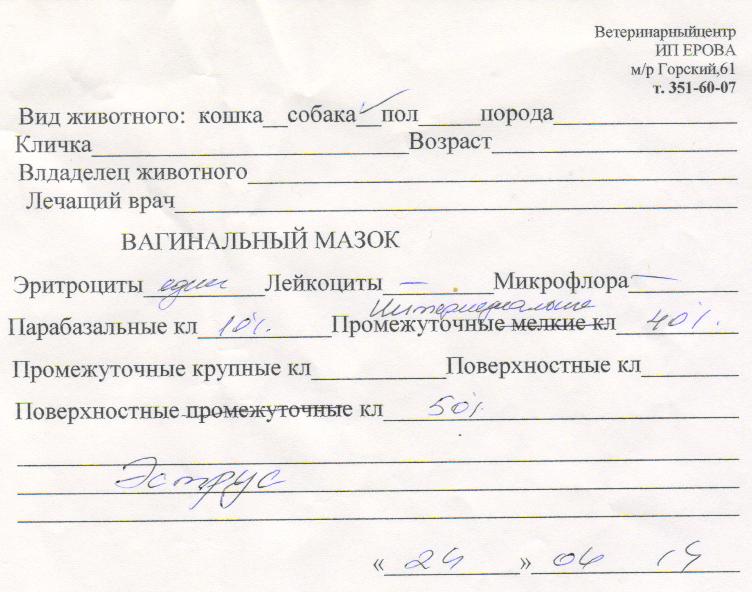 Ветеринарныйцентр
ИП ЕРОВА
м/р Горский,61
т. 351-60-07
Вид животного: кошка__собака__пол_____порода_______________
Кличка__________________________Возраст____________________
Влдаделец животного________________________________________
Лечащий врач______________________________________________
ВАГИНАЛЬНЫЙ МАЗОК
Эритроциты един Лейкоциты – Микрофлора –
Интермедиальные
Парабазальные кл 10% Промежуточные мелкие кл 40%.
Промежуточные крупные кл___________Поверхностные кл________
Поверхностные промежуточные кл 50%
Эструс
« 24 » 04 14